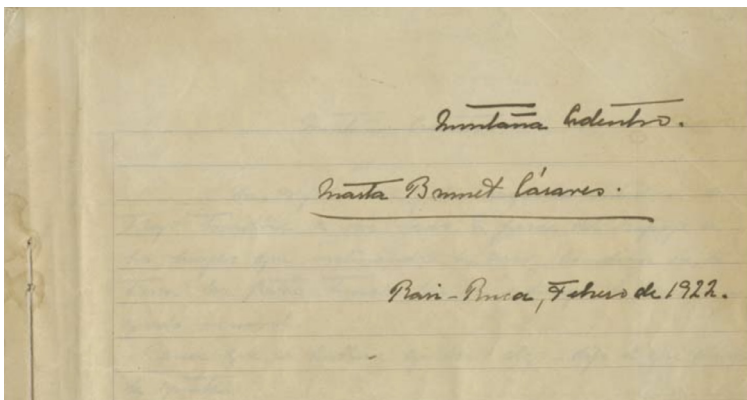 Montaña Adentro.
Marta Brunet Cáraves.
Rari-Ruca, Febrero de 1922.